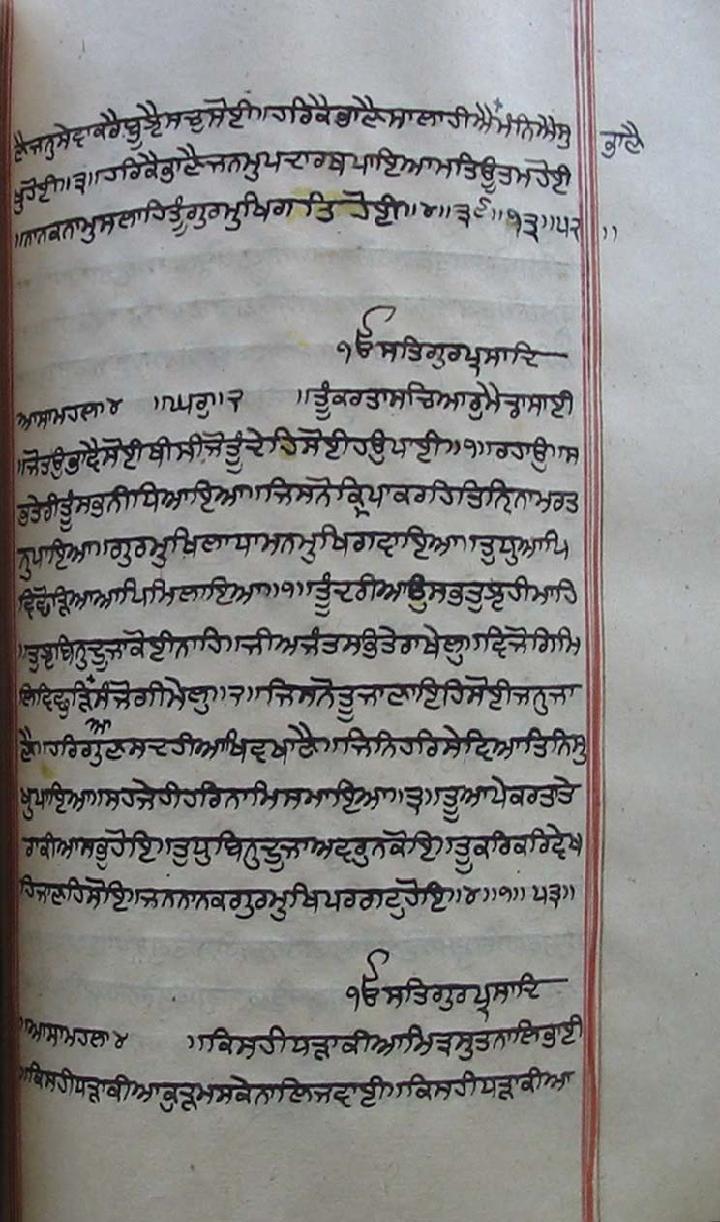 ਣੈਜਨੁਸੇਵਾਕਰੈਬੂਝੈਸਚੁਸੋਈ॥ਹਰਿਕੈਭਾਣੈਸਾਲਾਹੀਐਮੰਨਿਐਸੁ ਭਾਣੈ
ਖੁਹੋਈ॥੩॥ਹਰਿਕੈਭਾਣੈਜਨਮੁਪਦਾਰਥਪਾਇਆਮਤਿਊਤਮਹੋਈ
॥ਨਾਨਕਨਾਮੁਸਲਾਹਿਤੂੰਗੁਰਮੁਖਿਗਤਿਹੋਈ॥੪॥੩੯॥੧੩॥੫੨॥
ੴਸਤਿਗੁਰਪ੍ਰਸਾਦਿ
ਆਸਾਮਹਲਾ੪ ॥ਘਰੁ॥੨ ॥ਤੂੰਕਰਤਾਸਚਿਆਰੁਮੈਡਾਸਾਈ
॥ਜੋਤਉਭਾਵੈਸੋਈਥੀਸੀਜੋਤੂੰਦੇਹਿਸੋਈਹਉਪਾਈ॥੧॥ਰਹਾਉ॥ਸ
ਭਤੇਰੀਤੂੰਸਭਨੀਧਿਆਇਆ॥ਜਿਸਨੋਕ੍ਰਿਪਾਕਰਹਿਤਿਨਿਨਾਮਰਤ
ਨੁਪਾਇਆ॥ਗੁਰਮੁਖਿਲਾਧਾਮਨਮੁਖਿਗਵਾਇਆ॥ਤੁਧੁਆਪਿ
ਵਿਛੋੜਿਆਆਪਿਮਿਲਾਇਆ॥੧॥ਤੂੰਦਰੀਆਉਸਭਤੁਝਹੀਮਾਹਿ
॥ਤੁਝਬਿਨੁਦੂਜਾਕੋਈਨਾਹਿ॥ਜੀਅਜੰਤਸਭਿਤੇਰਾਖੇਲੁ॥ਵਿਜੋਗਿਮਿ
ਲਿਵਿਛੁੜਿਆਸੰਜੋਗੀਮੇਲੁ॥੨॥ਜਿਸਨੋਤੂਜਾਣਾਇਹਿਸੋਈਜਨੁਜਾ
ਣੈ॥ਹਰਿਗੁਣਸਦਹੀਆਖਿਵਖਾਣੈ॥ਜਿਨਿਹਰਿਸੇਵਿਆਤਿਨਿਸੁ
ਖੁਪਾਇਆ॥ਸਹਜੇਹੀਹਰਿਨਾਮਿਸਮਾਇਆ॥੩॥ਤੂਆਪੇਕਰਤਤੇ
ਰਾਕੀਆਸਭੁਹੋਇ॥ਤੁਧੁਬਿਨੁਦੂਜਾਅਵਰੁਨਕੋਇ॥ਤੂਕਰਿਕਰਿਵੇਖ
ਹਿਜਾਣਹਿਸੋਇ॥ਜਨਨਾਨਕਗੁਰਮੁਖਿਪਰਗਟੁਹੋਇ॥੪॥੧॥੫੩॥
ੴਸਤਿਗੁਰਪ੍ਰਸਾਦਿ
॥ਆਸਾਮਹਲਾ੪ ॥ਕਿਸਹੀਧੜਾਕੀਆਮਿਤ੍ਰਸੁਤਨਾਲਿਭਾਈ
॥ਕਿਸਹੀਧੜਾਕੀਆਕੁੜਮਸਕੇਨਾਲਿਜਵਾਈ॥ਕਿਸਹੀਧੜਾਕੀਆ